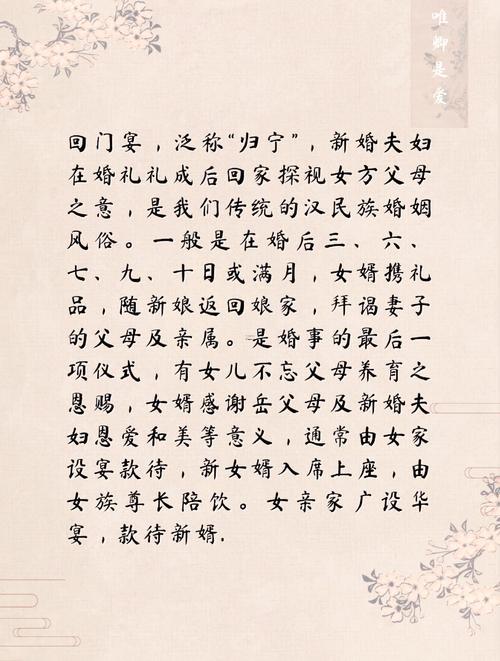 唯卿是爱
回门宴，泛称“归宁”，新婚夫妇
在婚礼礼成后回家探视女方父母
之意，是我们传统的汉民族婚姻
风俗。一般是在婚后三、六、
七、九、十日或满月，女婿携礼
品，随新娘返回娘家，拜谒妻子
的父母及亲属。是婚事的最后一
项仪式，有女儿不忘父母养育之
恩赐，女婿感谢岳父母及新婚夫
妇恩爱和美等意义，通常由女家
设宴款待，新女婿入席上座，由
女族尊长陪饮。女亲家广设华
宴，款待新婿.